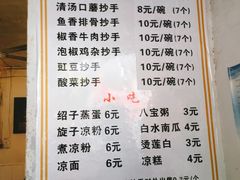 清汤口蘑抄手 8元/碗(7个)
鱼香排骨抄手 10元/碗(7个)
椒香牛肉抄手 10元/碗(7个)
泡椒鸡杂抄手 10元/碗(7个)
豇豆抄手 10元/碗(7个)
酸菜抄手 10元/碗(7个)
小吃
绍子蒸蛋 6元 八宝粥 3元
旋子凉粉 6元 白水南瓜 4元
煮凉粉 6元 烫莲白 3元
凉面 6元 凉糕 4元